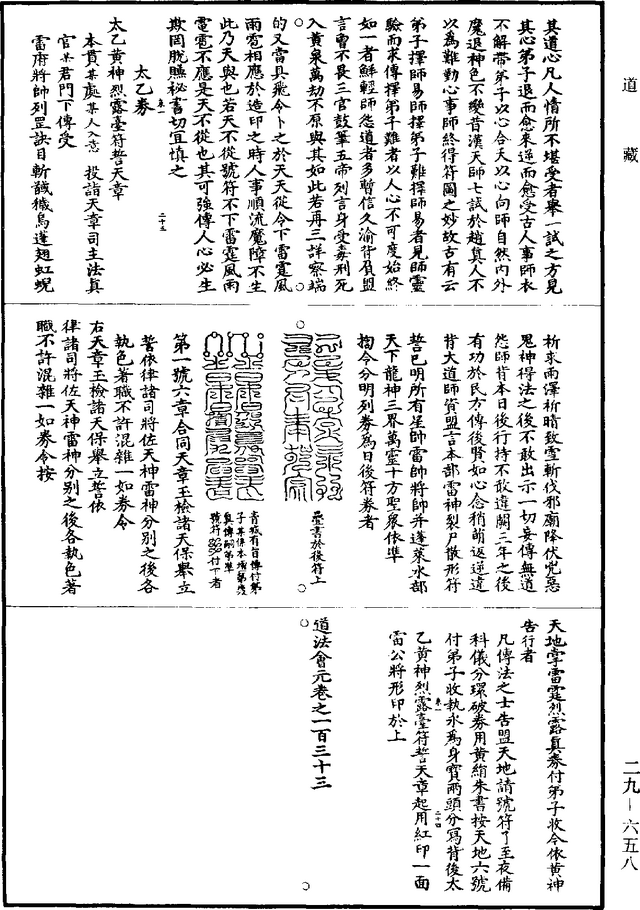 道藏
其道心凡人情所不堪受者舉一試之方見
其心弟子退而愈來逆而愈受古人事師衣
不解帶弟子以心合天以心向師自然內外
魔退神色不變昔漢天師七試於趙真人不
以為難勤心事師終得符圖之妙故古有云
弟子擇師易師擇弟子難擇師易者見師靈
驗而求傳擇弟子難者以人心不可度始終
如一者鮮輕師怨道者多暫信久渝背負盟
言曾不畏三官鼓筆五帝列言身受毒刑死
入黃泉萬劫不原與其如此若再三詳察端
的又當具飛今卜之於天天從令下雷霆風
雨雹相應於造印之時人事順流魔障不生
此乃天與也若天不從號符不下雷霆風雨
電雹不應是天不從也其可強傳人心必生
欺罔脫賺秘書切宜慎之
太乙券
太乙黃神烈露臺符誓天章
本貫某處某人入意 投諸天章司主法真
官某君門下傳受
雷府將帥列罡訣目斬馘穢鳥蓬翅虹蜺
祈求雨澤祈晴致雪斬伐邪廟降伏兇惡
鬼神得法之後不敢出示一切妄傳無道
怨師背本日後行持不敢違闕三年之後
有功於民方傳後賢如心念稍萌返逆違
背大道師資盟言本部雷神裂尸散形符
誓已明所有星帥雷帥將帥并蓬萊水部
天下龍神三界萬靈十方聖衆依準
掏令分明列券為日後符券者
疊書於後符上
青城有旨傳付第
子某傳本壇第幾
真傳嗣弟準
號符 付下者
第一號六章合同天章玉檢諸天保舉立
誓依律諸司將佐天神雷神分別之後各
執色著職不許混雜一如券令
右天章玉檢諸天保舉立誓依
律諸司將佐天神雷神分別之後各執色著
職不許混雜一如券令按
天地掌雷霆烈露真券付弟子收令依黃神
告行者
凡傳法之士告盟天地請號符了至夜備
科儀分環破券用黃絹朱書按天地六號
付弟子收執永為身寶兩頭分寫背後太
乙黃神烈露臺符誓天章起用紅印一面
雷公將形印於上
道法會元卷之一百三十三
二九—六五八